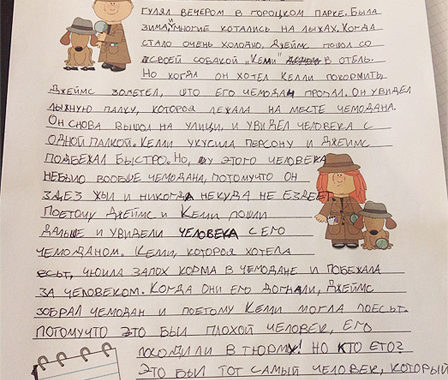 гулял вечером в гороцком парке. Была
зима, и многие котались на лыжах. Когда
стало очень холодно, Джеймс пошол со
своей собакой "Кеми" в отель.
Но когда он хотел Келли покормить
Джеймс зометел, что его чемодан пропал. Он увидел
лыжную палку, котороя лежала на месте чемодана.
Он снова вышол на улици и увидел человека с
одной палкой. Кемли укусила персону и Джеймс
подбежал быстро. Но, у этого человека
небыло вообще чемодана, потомучто он
здез жыл и никогда некуда не ездеет.
Поетому Джеймс и Кеми пошли
дальше и увидели человека с его
чемоданом. Кеми, котороя хотела
есьт, учюила запох корма в чемодане и побежала
за человеком. Когда они его догнали, Джеймс
зобрал чемодан и поетому Кеми могла поесьт.
Потомучто это был плохой человек, его
посотили в тюрму! Но кто ето?
Это был тот самый человек, который